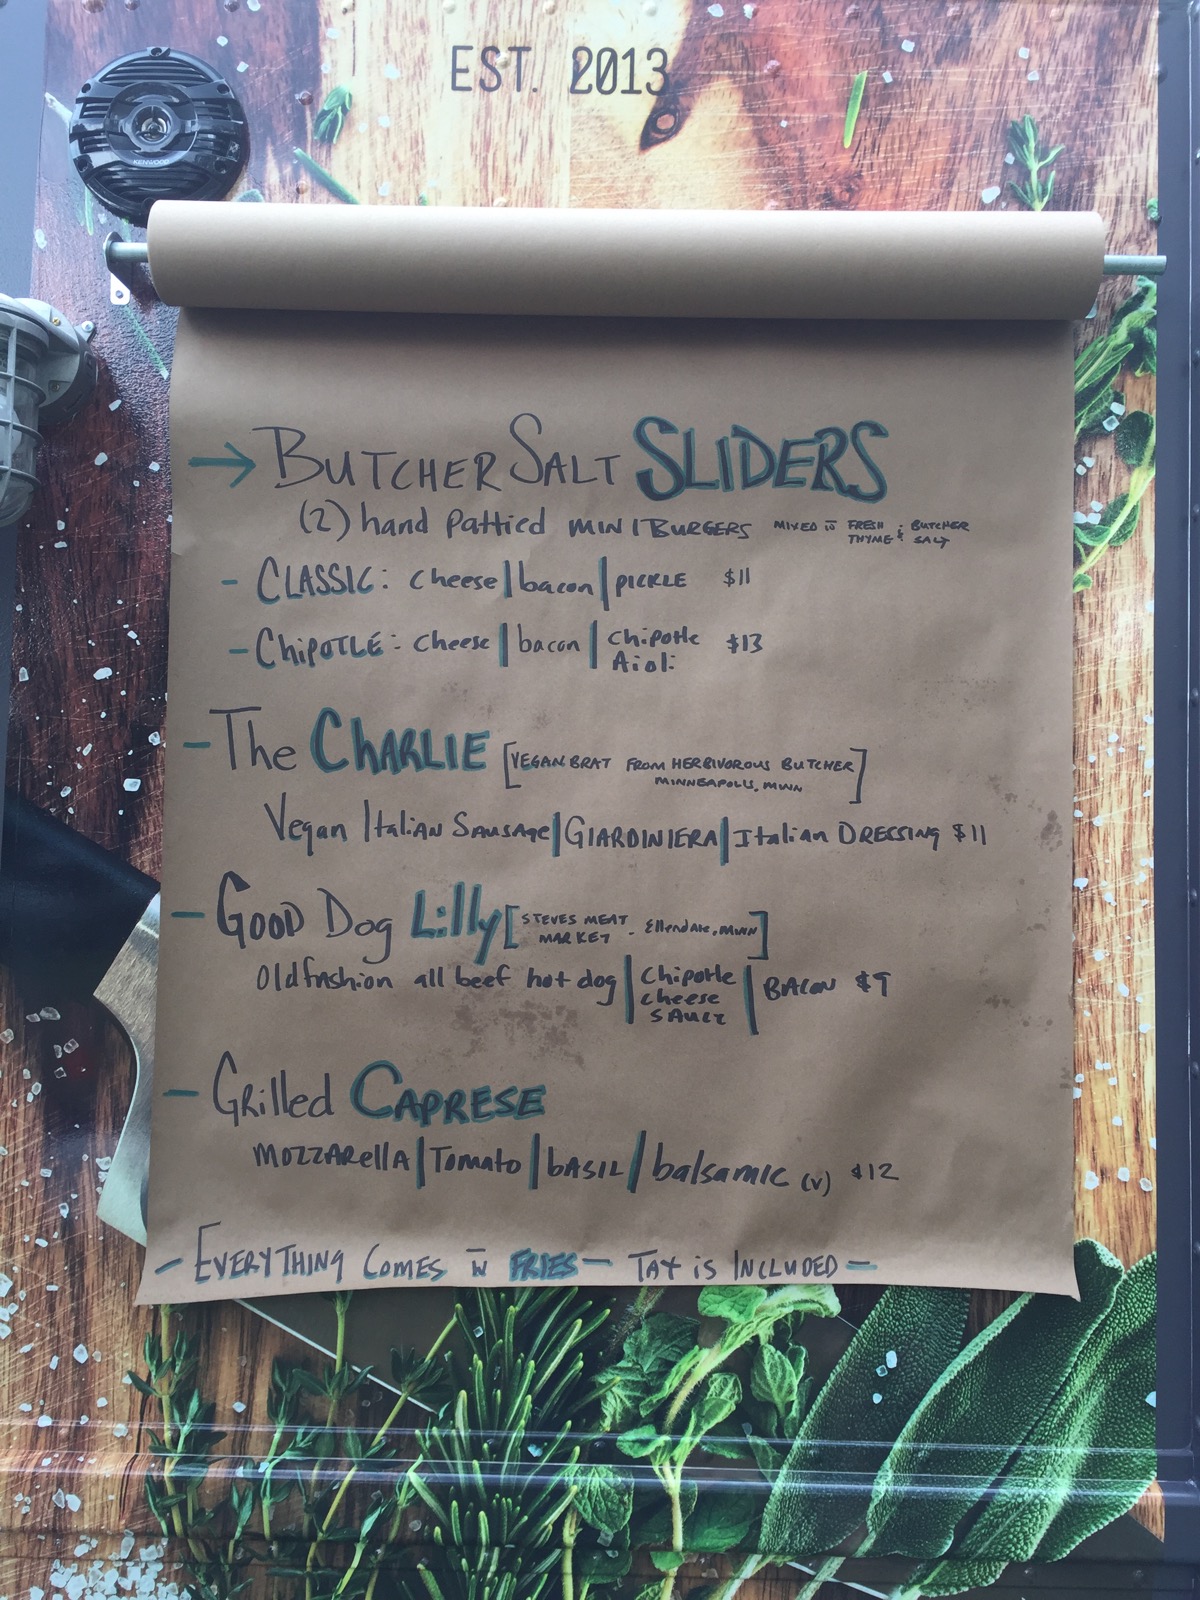 EST. 2013
KENWOOD
→ BUTCHER SALT SLIDERS
(2) hand Pattied MINI BURGERS MIXED w FRESH THYME & BUTCHER SALT
- CLASSIC: cheese | bacon | PICKLE $11
- CHIPOTLE: cheese | bacon | Chipotle Aioli $13
- The CHARLIE [VEGAN BRAT FROM HERBIVOROUS BUTCHER MINNEAPOLIS, MINN]
Vegan Italian Sausage | GIARDINIERA | Italian DRESSING $11
- GOOD Dog Lilly [STEVES MEAT MARKET - Ellendale, MINN]
Old fashion all beef hot dog | Chipotle cheese SAUCE | BACON $9
- Grilled CAPRESE
MOZZARellA | Tomato | bASIL | balsamic (v) $12
- EVERYTHING COMES w FRIES - TAX is INCLUDED -